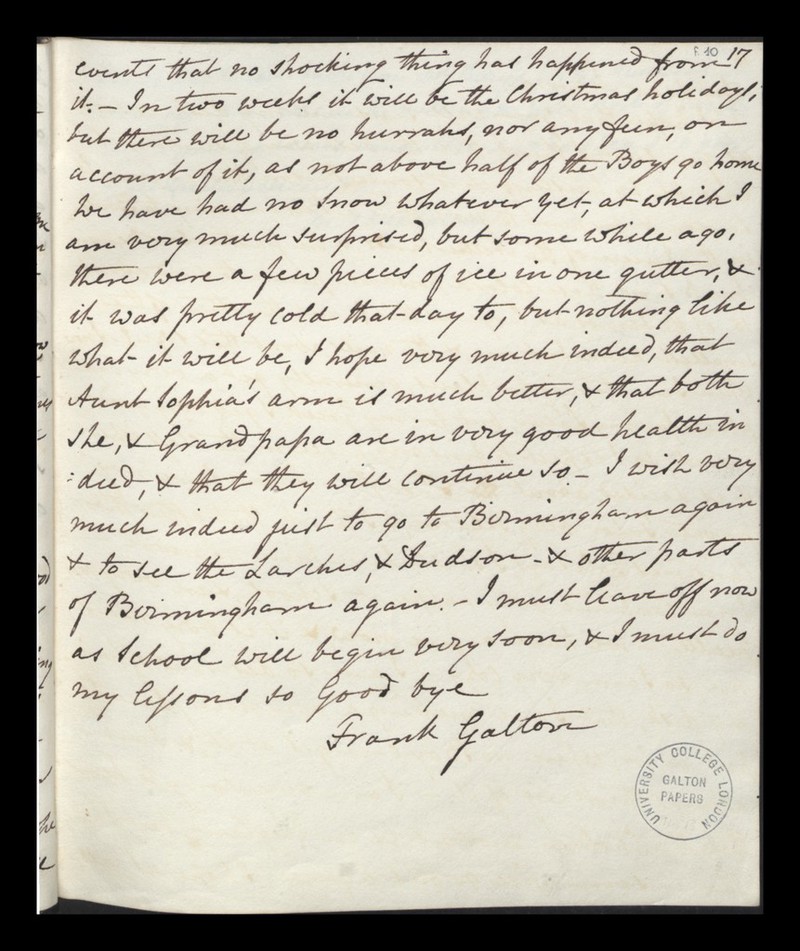 f. 10 17
events that no shocking thing has happened from
it. – In two weeks it will be the Christmas holidays,
but there will be no hurrahs, nor any fun, on
account of it, as not above half of the Boys go home
We have had no Snow whatever yet, at which I
am very much surprised, but some while ago,
there were a few pieces of ice in one gutter, &
it was pretty cold that day to, but nothing like
what it will be, I hope very much indeed, that
Aunt Sophia's arm is much better, & that both
she, & Grandpapa are in very good health in
:deed, & that they will continue so – I wish very
much indeed just to go to Birmingham again
& to see the Larches, & Dudson – & other parts
of Birmingham again. – I must leave off now
as School will begin very soon, & I must do
my lessons so Good bye
Frank Galton
UNIVERSITY COLLEGE LONDON
GALTON
PAPERS